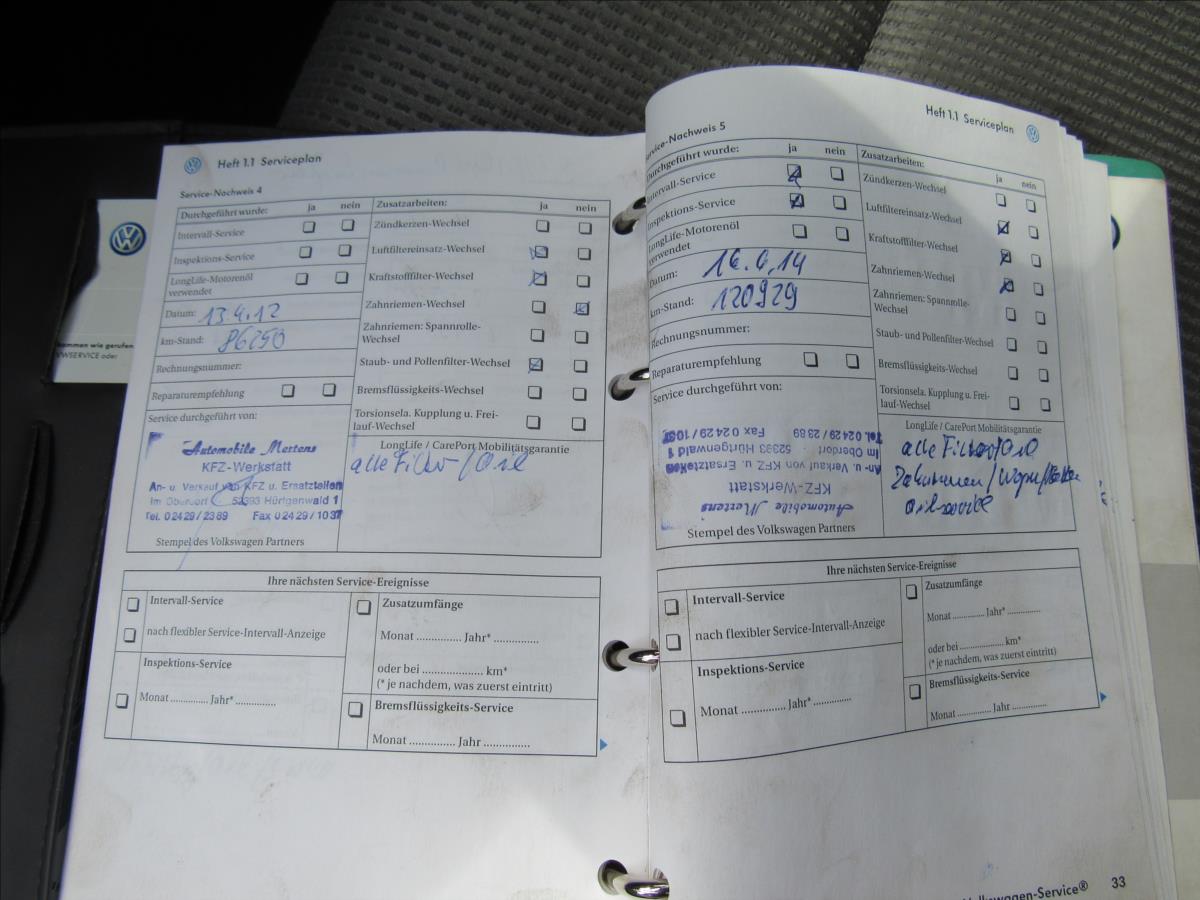 Heft 1.1 Serviceplan
Service-Nachweis 4
Durchgeführt wurde: ja nein
Intervall-Service
Inspektions-Service
LongLife-Motorenöl
verwendet
Datum: 13.4.12
km-Stand: 86250
Rechnungsnummer:
Reparaturempfehlung
Service durchgeführt von:
Automobile Mertens
KFZ-Werkstatt
An- u. Verkauf van KFZ u. Ersatzteilen
Im Oberdorf 52393 Hürtgenwald 1
Tel. 02429/2389 Fax 02429/1037
Stempel des Volkswagen Partners
Zusatzarbeiten: ja nein
Zündkerzen-Wechsel
Luftfiltereinsatz-Wechsel
Kraftstofffilter-Wechsel
Zahnriemen-Wechsel
Zahnriemen: Spannrolle-
Wechsel
Staub- und Pollenfilter-Wechsel
Bremsflüssigkeits-Wechsel
Torsionsela. Kupplung u. Frei-
lauf-Wechsel
LongLife / CarePort Mobilitätsgarantie
alle Filter/Öle
Ihre nächsten Service-Ereignisse
Intervall-Service
nach flexibler Service-Intervall-Anzeige
Inspektions-Service
Monat ............. Jahr* .............
Zusatzumfänge
Monat .............. Jahr* ..............
oder bei .................. km*
(* je nachdem, was zuerst eintritt)
Bremsflüssigkeits-Service
Monat .............. Jahr ..............
kommen wie gerufen
VWSERVICE oder
Heft 1.1 Serviceplan
Service-Nachweis 5
Durchgeführt wurde: ja nein
Intervall-Service
Inspektions-Service
LongLife-Motorenöl
verwendet
Datum: 16.6.14
km-Stand: 120929
Rechnungsnummer:
Reparaturempfehlung
Service durchgeführt von:
Automobile Mertens
KFZ-Werkstatt
An- u. Verkauf von KFZ u. Ersatzteilen
Im Oberdorf · 52393 Hürtgenwald 1
Tel. 02429/2389 Fax 02429/1037
Stempel des Volkswagen Partners
Zusatzarbeiten: ja nein
Zündkerzen-Wechsel
Luftfiltereinsatz-Wechsel
Kraftstofffilter-Wechsel
Zahnriemen-Wechsel
Zahnriemen: Spannrolle-
Wechsel
Staub- und Pollenfilter-Wechsel
Bremsflüssigkeits-Wechsel
Torsionsela. Kupplung u. Frei-
lauf-Wechsel
LongLife / CarePort Mobilitätsgarantie
alle Filter/Öle
Ihre nächsten Service-Ereignisse
Intervall-Service
nach flexibler Service-Intervall-Anzeige
Inspektions-Service
Monat .............. Jahr* .............
Zusatzumfänge
Monat .............. Jahr* ..............
oder bei .................. km*
(* je nachdem, was zuerst eintritt)
Bremsflüssigkeits-Service
Monat .............. Jahr ..............
Volkswagen-Service® 33